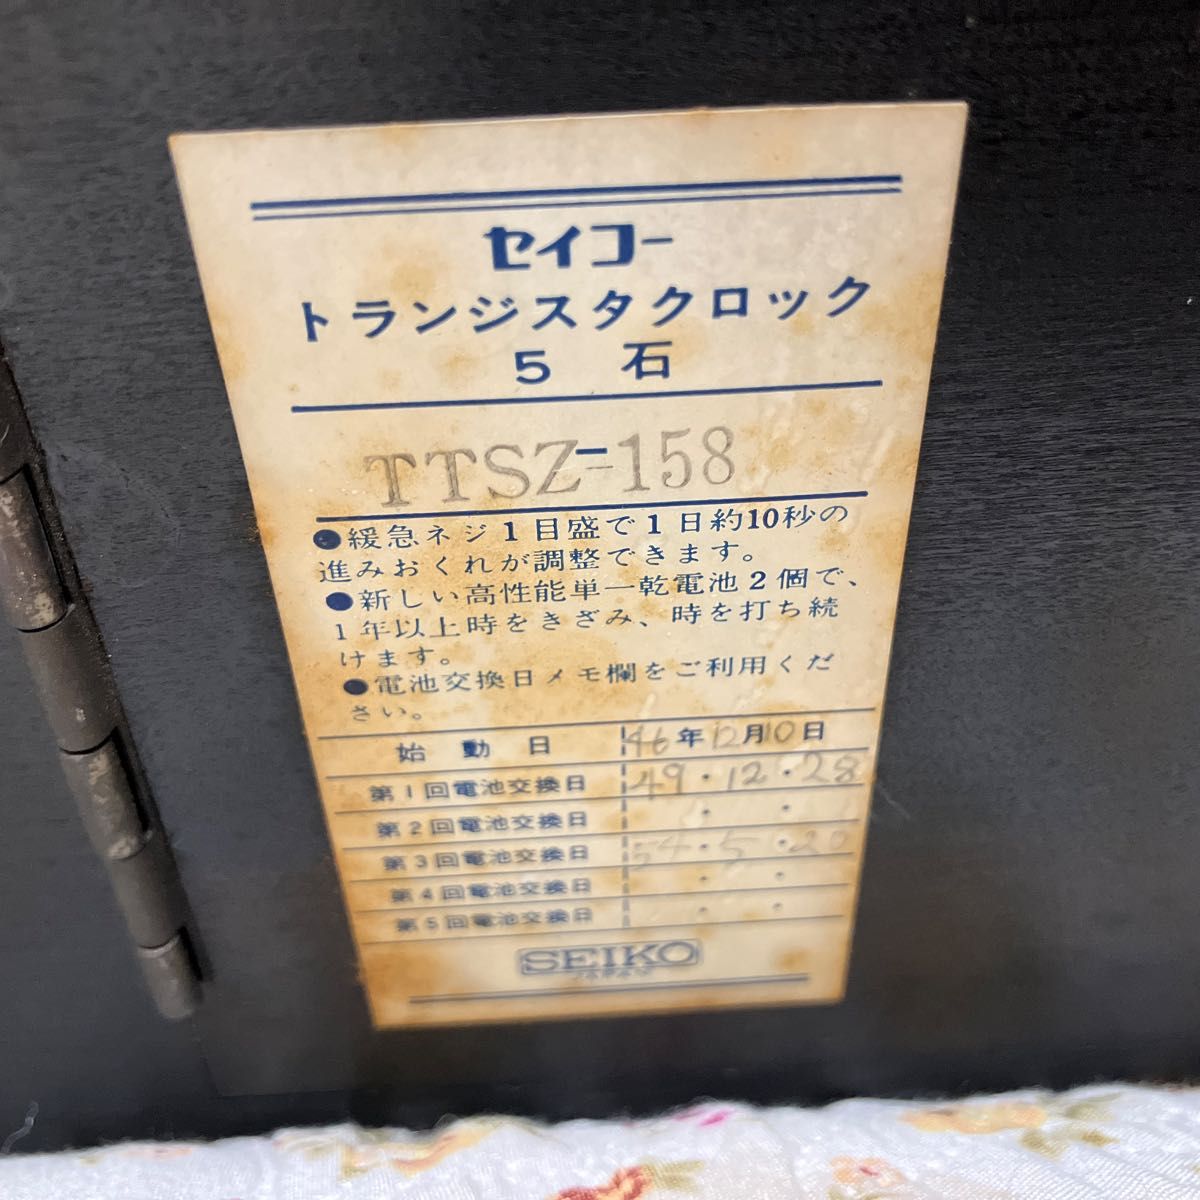 セイコー
トランジスタクロック
5 石
TTSZ-158
●緩急ネジ1目盛で1日約10秒の
進みおくれが調整できます。
●新しい高性能単一乾電池2個で、
1年以上時をきざみ、時を打ち続
けます。
●電池交換日メモ欄をご利用くだ
さい。
始動日 46年12月10日
第1回電池交換日 49・12・28
第2回電池交換日 ・ ・
第3回電池交換日 54・5・20
第4回電池交換日 ・ ・
第5回電池交換日 ・ ・
SEIKO
JAPAN